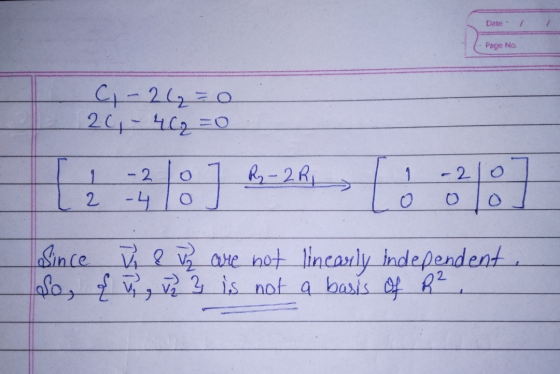 Date / /
Page No.
C₁ - 2C₂ = 0
2C₁ - 4C₂ = 0
[ 1 -2 | 0 ] R₂ - 2R₁ → [ 1 -2 | 0 ]
[ 2 -4 | 0 ] [ 0 0 | 0 ]
Since v⃗₁ & v⃗₂ are not linearly independent.
So, { v⃗₁, v⃗₂ } is not a basis of R².